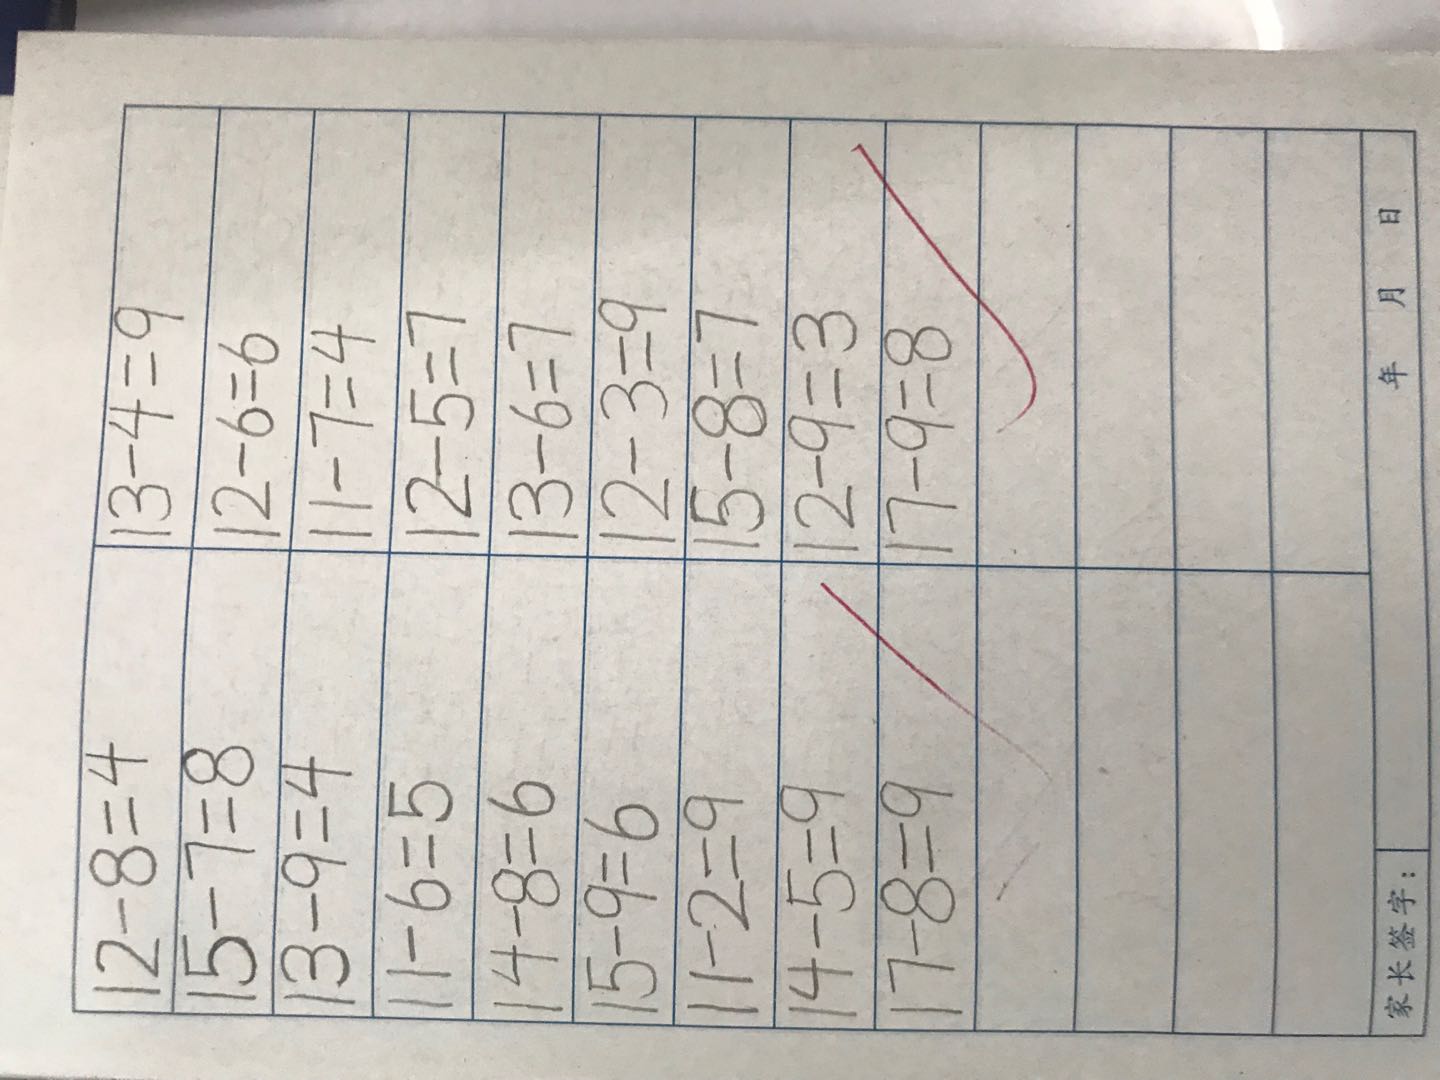 12-8=4 13-4=9
15-7=8 12-6=6
13-9=4 11-7=4
11-6=5 12-5=7
14-8=6 13-6=7
15-9=6 12-3=9
11-2=9 15-8=7
14-5=9 12-9=3
17-8=9 17-9=8
家长签字： 年 月 日